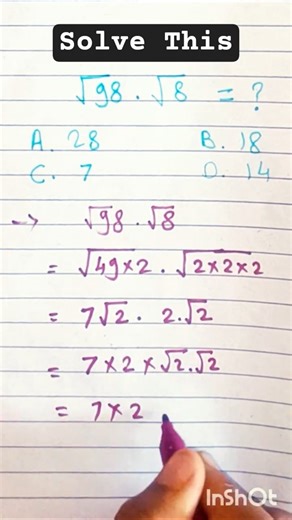 Solve This
√98 · √8 = ?
A. 28 B. 18
C. 7 D. 14
→ √98 · √8
= √49×2 · √2×2×2
= 7√2 · 2·√2
= 7×2×√2·√2
= 7×2
InShOt